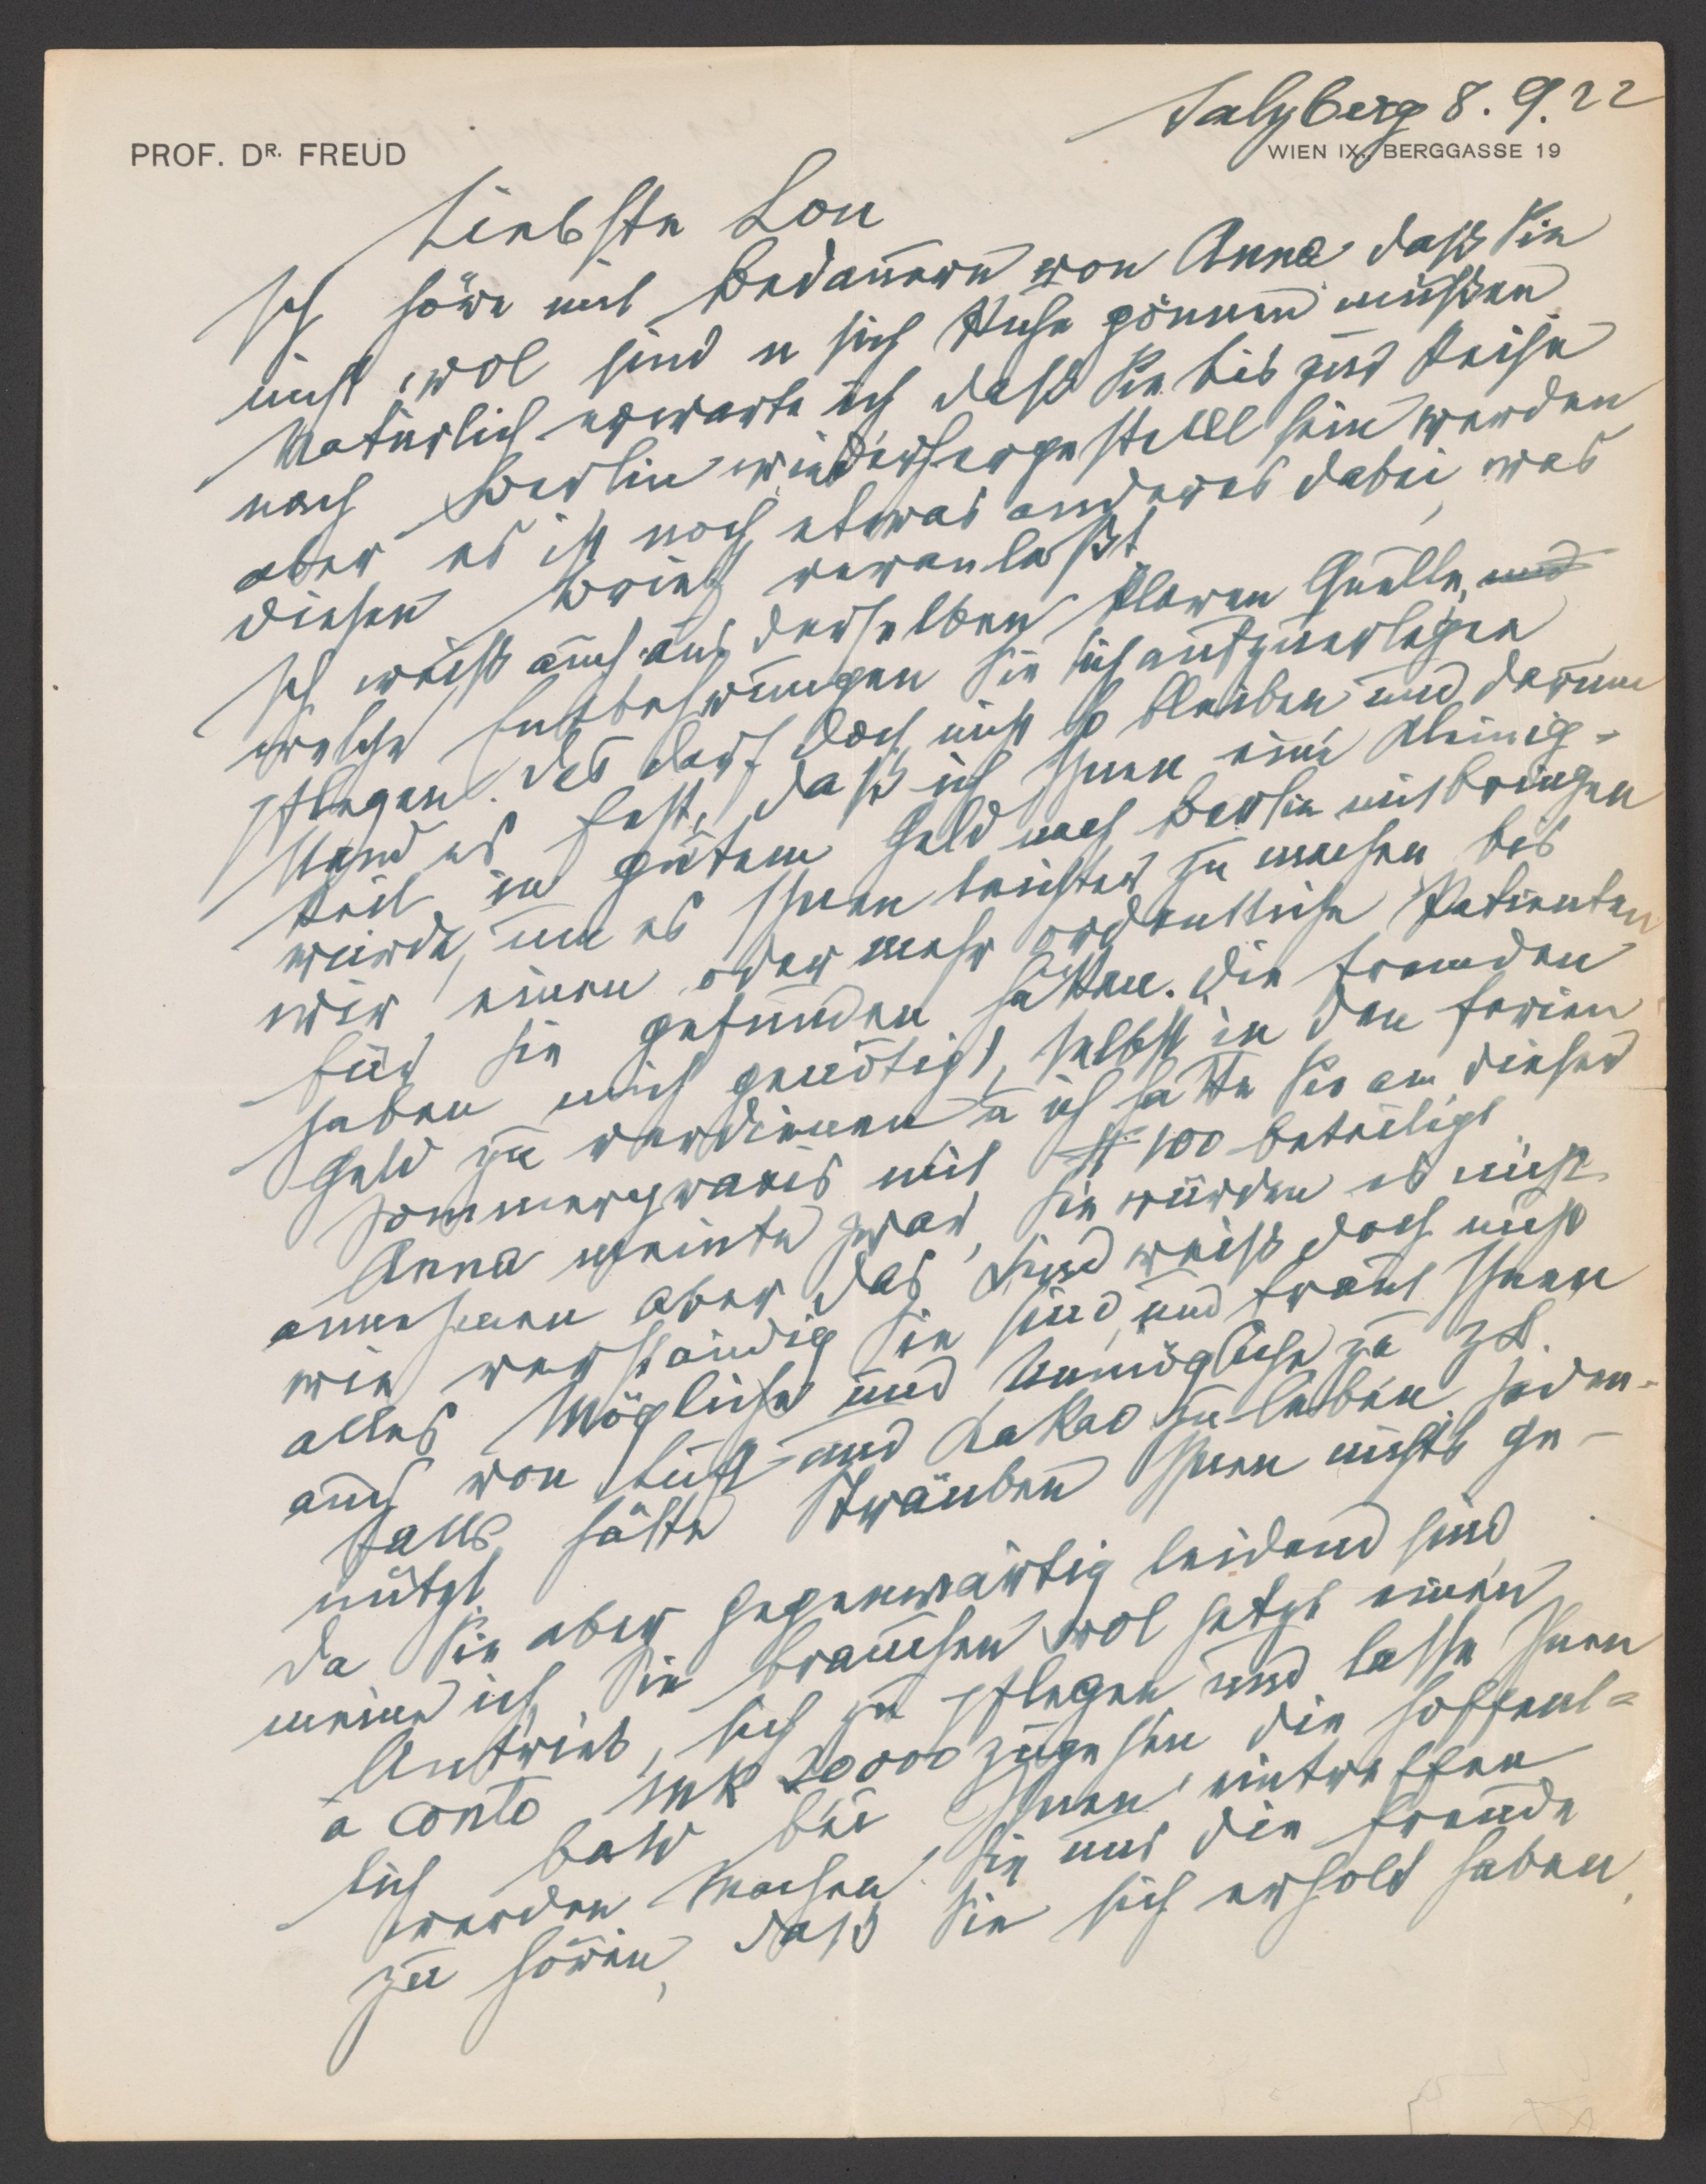 Salzberg 8. 9. 22
PROF. DR. FREUD
WIEN IX., BERGGASSE 19
Liebste Lou
Ich höre mit Bedauern von Anna daß Sie
nicht wol sind u sich Ruhe gönnen müssen
Natürlich erwarte ich daß Sie bis zur Reise
nach Berlin wiederhergestellt sein werden
aber es ist noch etwas anderes dabei, was
diesen Brief veranlaßt
Ich weiß auch aus derselben klaren Quelle, und
welche Entbehrungen Sie sich aufzuerlegen
pflegen. Das darf doch nicht so bleiben und darum
stand es fest, daß ich Ihnen eine Kleinig-
keit in gutem Geld nach Berlin mitbringen
würde, um es Ihnen leichter zu machen bis
wir einen oder mehr ordentliche Patienten
für Sie gefunden hätten. Die Fremden
haben mich genötigt, selbst in den Ferien
Geld zu verdienen u ich hatte Sie an dieser
Sommerpraxis mit 100 beteiligt
Anna meinte zwar, Sie würden es nicht
annehmen aber das Kind weiß doch nicht
wie verständig Sie sind, und traut Ihnen
alles Mögliche und Unmögliche zu z.B.
auch von Luft und Kakao zu leben. Jeden-
falls hätte Sträuben Ihnen nichts ge-
nützt
Da Sie aber gegenwärtig leidend sind,
meine ich, Sie brauchen wol jetzt einen
Antrieb, sich zu pflegen und lasse Ihnen
à conto Mk 20000 zugehen die hoffent-
lich bald bei Ihnen eintreffen
werden Machen Sie uns die Freude
zu hören, daß Sie sich erholt haben,